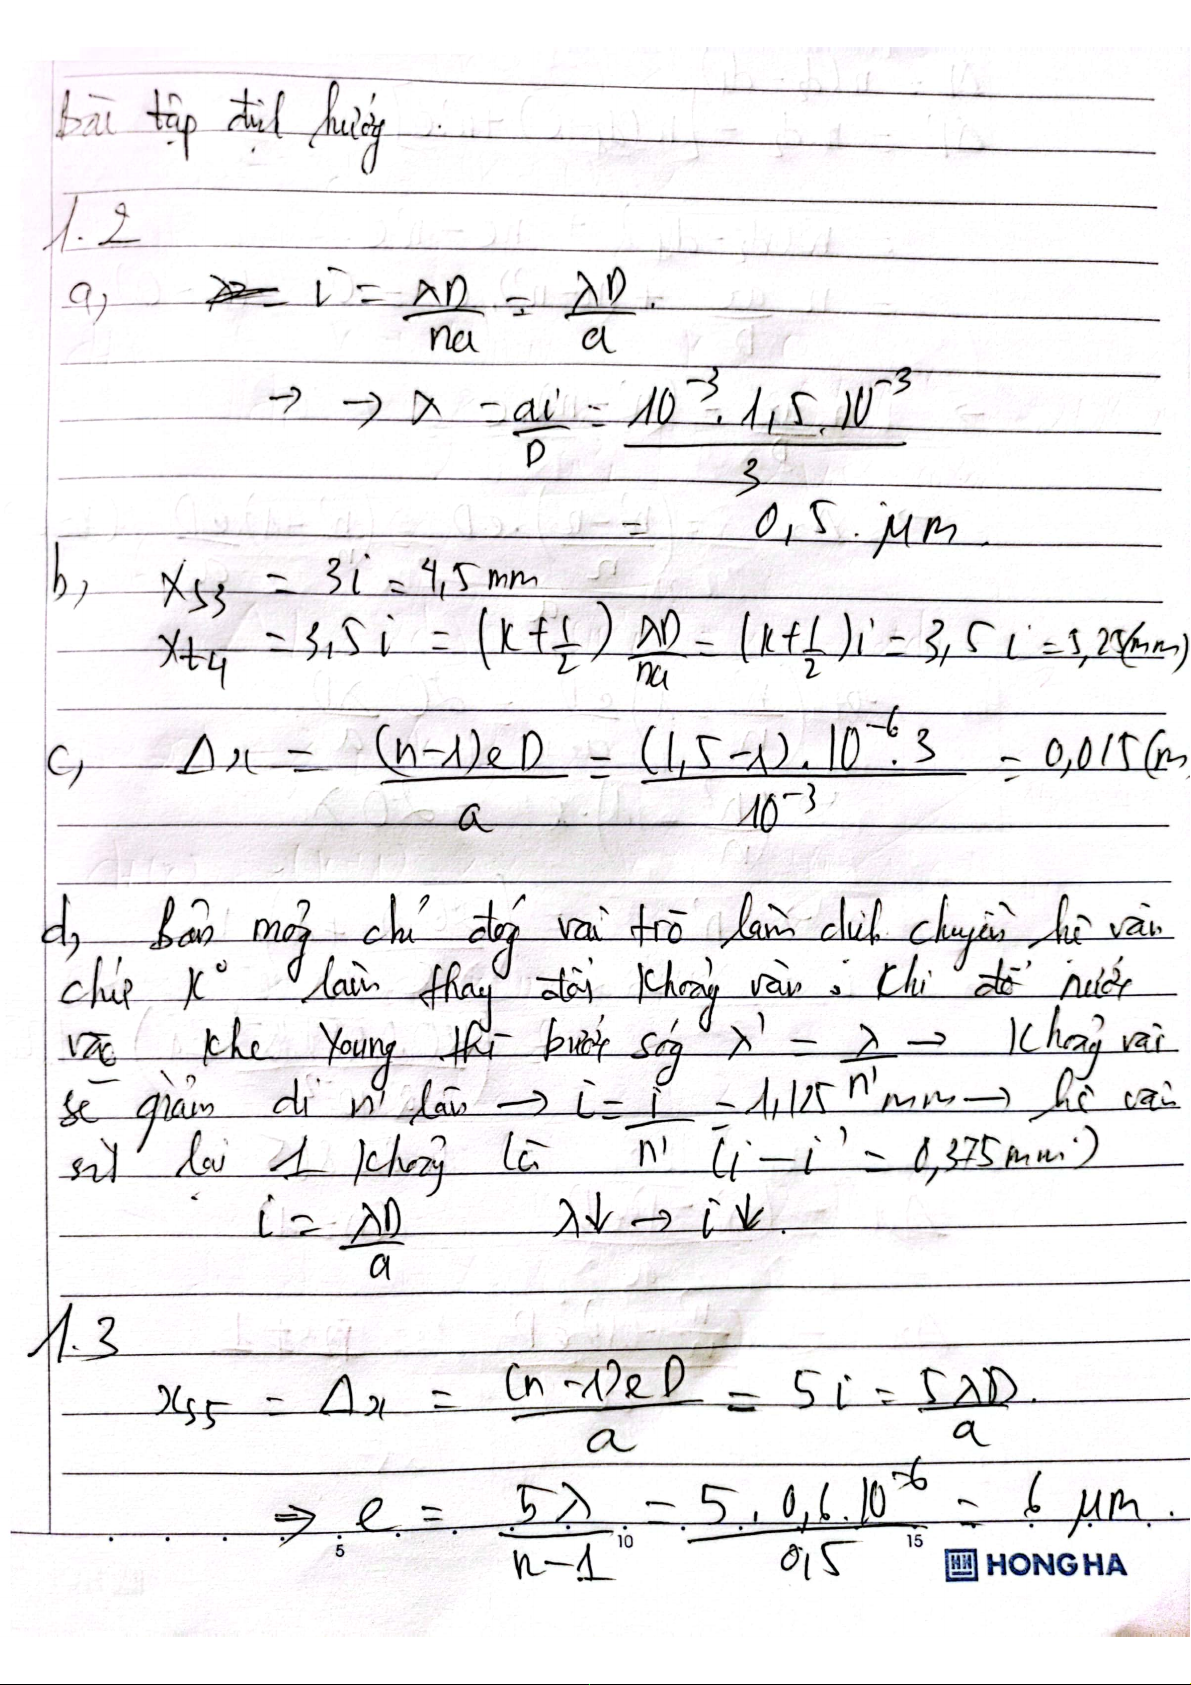 Bài tập định hướng.
1.2
a, i = λD/na = λD/a.
→ → λ = ai/D = 10^-3 . 1,5 . 10^-3 / 3
= 0,5 . μm.
b, xs3 = 3i = 4,5 mm
xt4 = 3,5 i = (k + 1/2) λD/na = (k + 1/2) i = 3,5 i = 5,25 (mm)
c, Δx = (n-1)eD/a = (1,5-1) . 10^-6 . 3 / 10^-3 = 0,015 (m
d, Bản mỏng chỉ đóng vai trò làm dịch chuyển hệ vân
chứ k° làm thay đổi khoảng vân. Khi đổ nước
vào khe Young thì bước sóng λ' = λ/n' → khoảng vân
sẽ giảm đi n' lần → i = i/n' = 1,125 mm → hệ vân
sít lại 1 khoảng là (i - i' = 0,375mm)
i = λD/a λ↓ → i↓.
1.3
xs5 = Δx = (n-1)eD/a = 5i = 5λD/a.
⇒ e = 5λ/n-1 = 5 . 0,6 . 10^-6 / 0,5 = 6 μm.
5 10 15
HONG HA